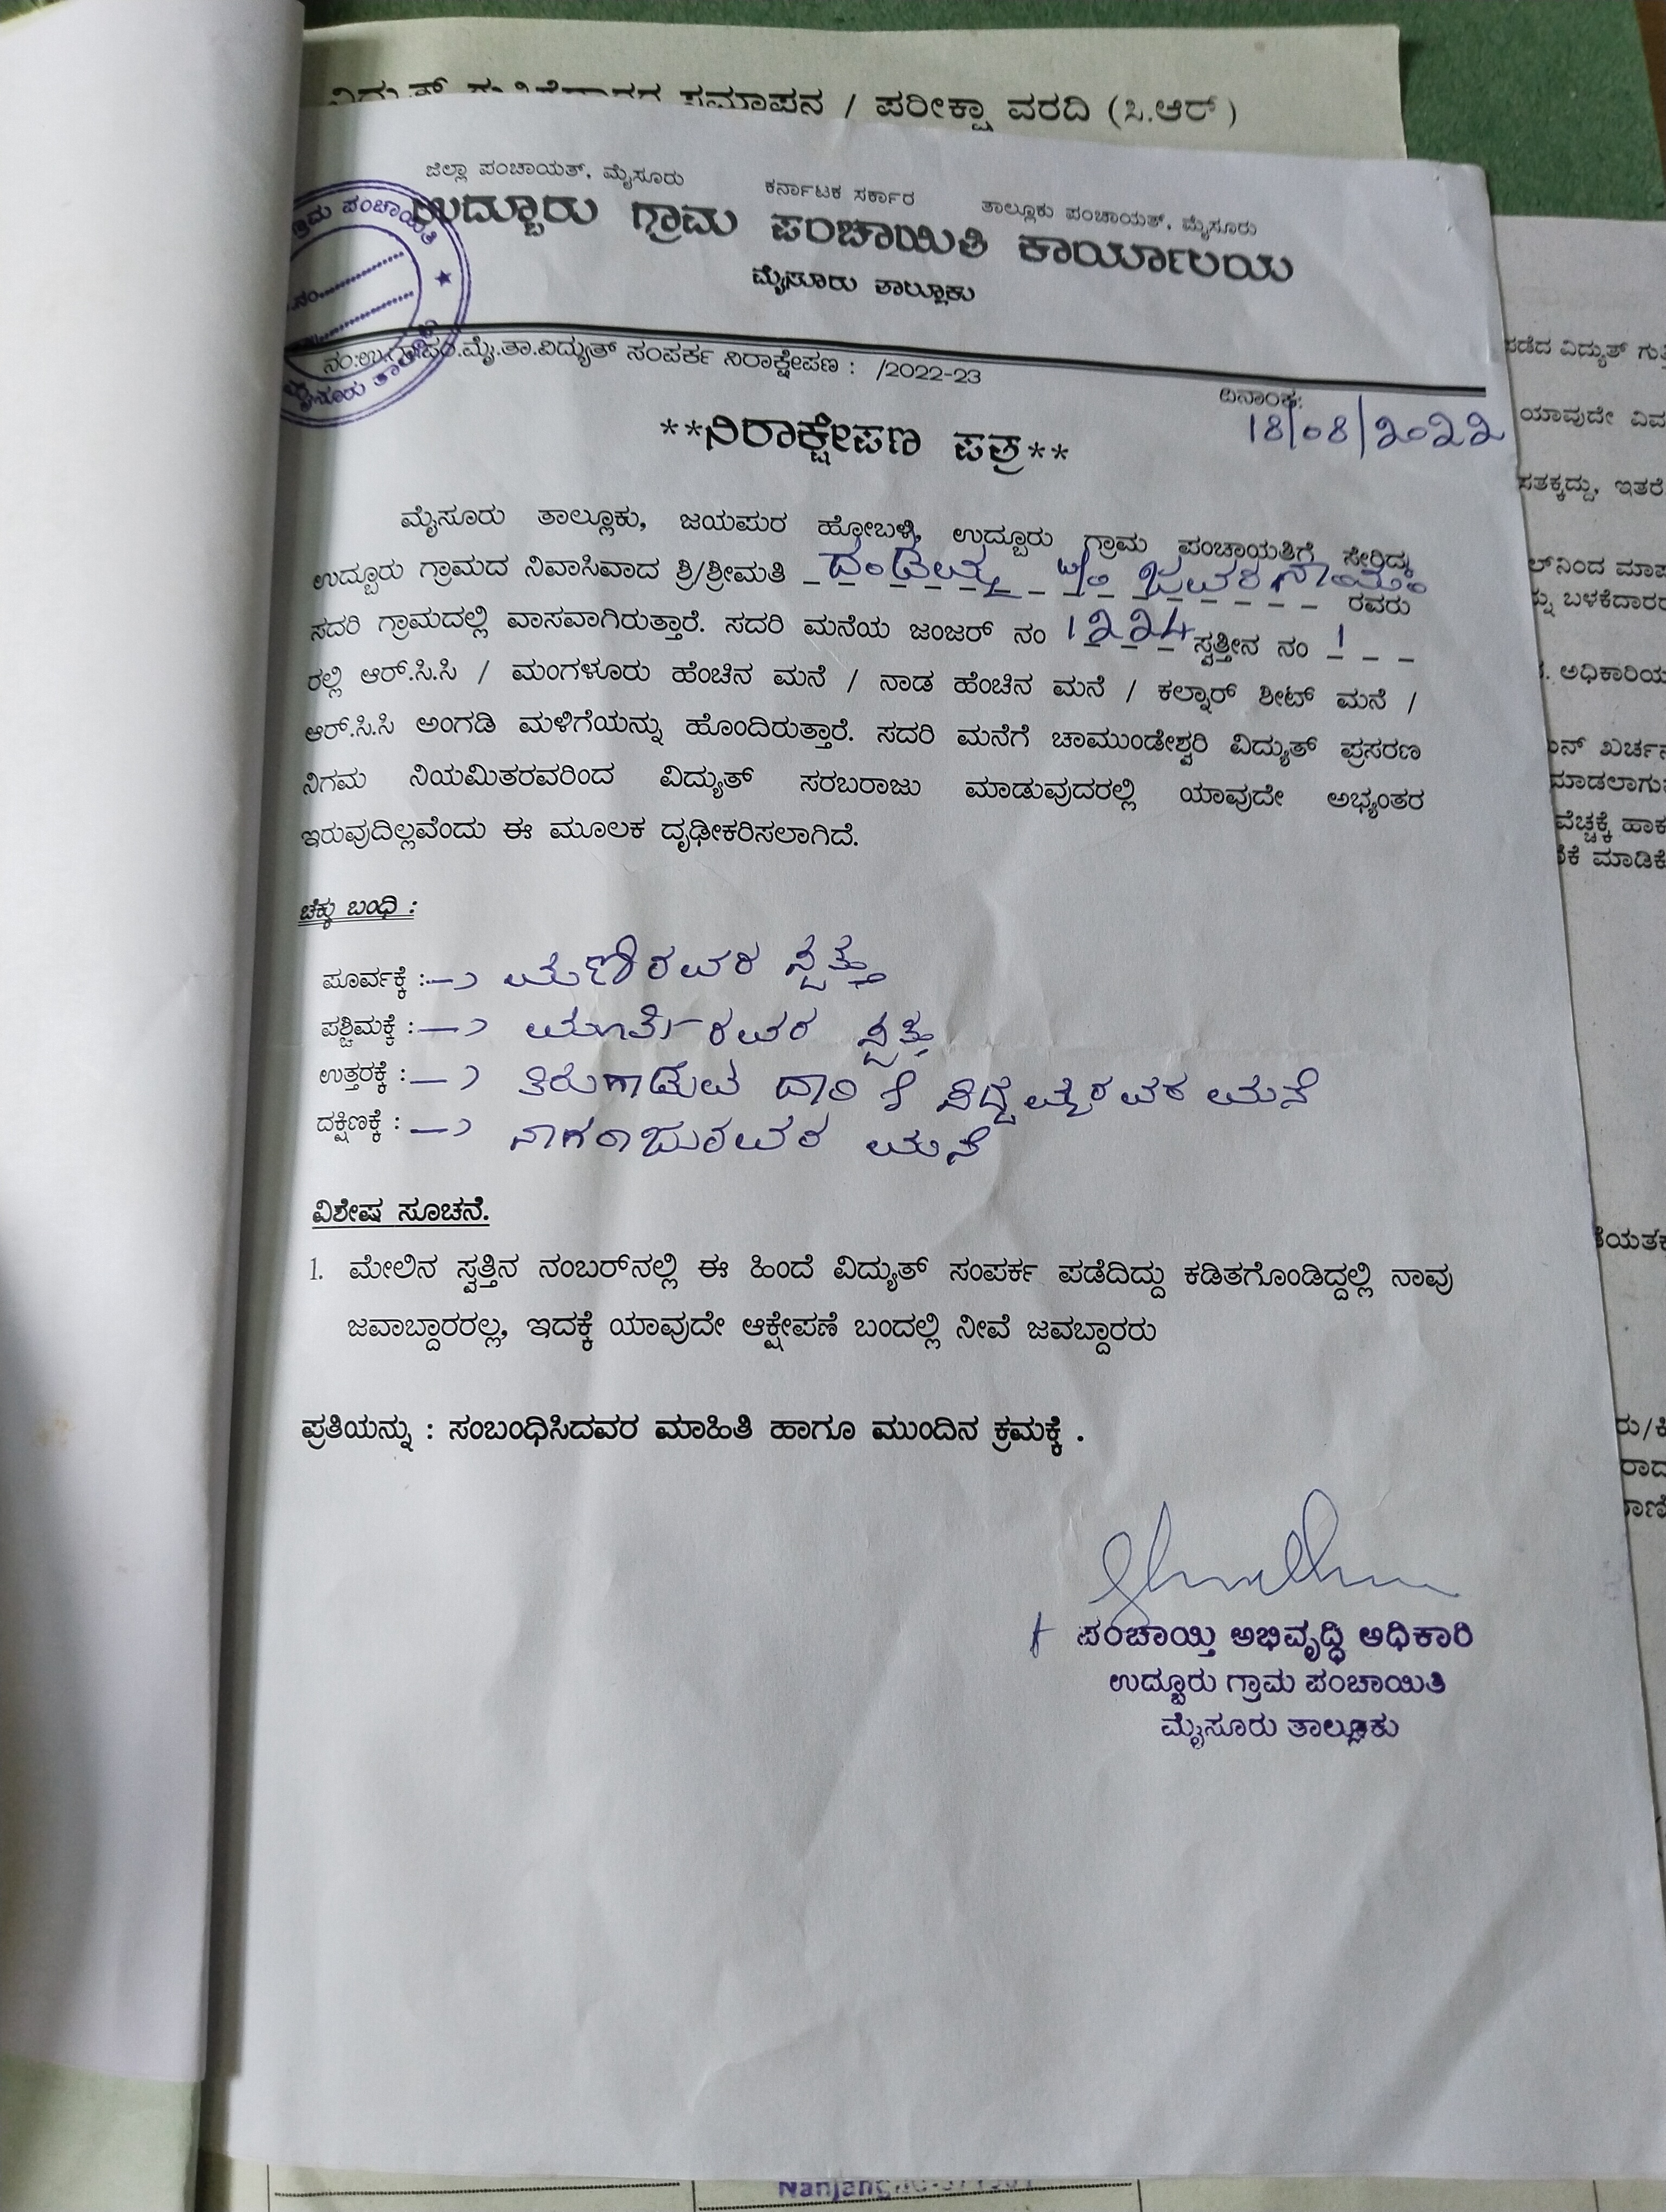 ಸಮಾಪನ / ಪರೀಕ್ಷಾ ವರದಿ (ಸಿ.ಆರ್)
ಜಿಲ್ಲಾ ಪಂಚಾಯತ್, ಮೈಸೂರು ಕರ್ನಾಟಕ ಸರ್ಕಾರ ತಾಲ್ಲೂಕು ಪಂಚಾಯತ್, ಮೈಸೂರು
ಉದ್ಬೂರು ಗ್ರಾಮ ಪಂಚಾಯಿತಿ ಕಾರ್ಯಾಲಯ
ಮೈಸೂರು ತಾಲ್ಲೂಕು
ನಂ:ಉ.ಗ್ರಾ.ಪಂ.ಮೈ.ತಾ.ವಿದ್ಯುತ್ ಸಂಪರ್ಕ ನಿರಾಕ್ಷೇಪಣ : /2022-23
ದಿನಾಂಕ:
18/08/2022
**ನಿರಾಕ್ಷೇಪಣ ಪತ್ರ**
ಮೈಸೂರು ತಾಲ್ಲೂಕು, ಜಯಪುರ ಹೋಬಳಿ, ಉದ್ಬೂರು ಗ್ರಾಮ ಪಂಚಾಯತಿಗೆ ಸೇರಿದ್ದ
ಉದ್ಬೂರು ಗ್ರಾಮದ ನಿವಾಸಿವಾದ ಶ್ರಿ/ಶ್ರೀಮತಿ ರವರು
ಸದರಿ ಗ್ರಾಮದಲ್ಲಿ ವಾಸವಾಗಿರುತ್ತಾರೆ. ಸದರಿ ಮನೆಯ ಜಂಜರ್ ನಂ 1224 ಸ್ವತ್ತೀನ ನಂ 1
ರಲ್ಲಿ ಆರ್.ಸಿ.ಸಿ / ಮಂಗಳೂರು ಹೆಂಚಿನ ಮನೆ / ನಾಡ ಹೆಂಚಿನ ಮನೆ / ಕಲ್ನಾರ್ ಶೀಟ್ ಮನೆ /
ಆರ್.ಸಿ.ಸಿ ಅಂಗಡಿ ಮಳಿಗೆಯನ್ನು ಹೊಂದಿರುತ್ತಾರೆ. ಸದರಿ ಮನೆಗೆ ಚಾಮುಂಡೇಶ್ವರಿ ವಿದ್ಯುತ್ ಪ್ರಸರಣ
ನಿಗಮ ನಿಯಮಿತರವರಿಂದ ವಿದ್ಯುತ್ ಸರಬರಾಜು ಮಾಡುವುದರಲ್ಲಿ ಯಾವುದೇ ಅಭ್ಯಂತರ
ಇರುವುದಿಲ್ಲವೆಂದು ಈ ಮೂಲಕ ದೃಢೀಕರಿಸಲಾಗಿದೆ.
ಚೆಕ್ಕು ಬಂಧಿ :
ಪೂರ್ವಕ್ಕೆ : ಮಣಿರವರ ಸ್ವತ್ತು
ಪಶ್ಚಿಮಕ್ಕೆ : ಮೂರ್ತಿರವರ ಸ್ವತ್ತು
ಉತ್ತರಕ್ಕೆ : ತಿರುಗಾಡುವ ದಾರಿ & ಸಿದ್ದಯ್ಯರವರ ಮನೆ
ದಕ್ಷಿಣಕ್ಕೆ : ನಾಗರಾಜುರವರ ಮನೆ
ವಿಶೇಷ ಸೂಚನೆ.
1. ಮೇಲಿನ ಸ್ವತ್ತಿನ ನಂಬರ್‌ನಲ್ಲಿ ಈ ಹಿಂದೆ ವಿದ್ಯುತ್ ಸಂಪರ್ಕ ಪಡೆದಿದ್ದು ಕಡಿತಗೊಂಡಿದ್ದಲ್ಲಿ ನಾವು
ಜವಾಬ್ದಾರರಲ್ಲ, ಇದಕ್ಕೆ ಯಾವುದೇ ಆಕ್ಷೇಪಣೆ ಬಂದಲ್ಲಿ ನೀವೆ ಜವಬ್ದಾರರು
ಪ್ರತಿಯನ್ನು : ಸಂಬಂಧಿಸಿದವರ ಮಾಹಿತಿ ಹಾಗೂ ಮುಂದಿನ ಕ್ರಮಕ್ಕೆ .
ಪಂಚಾಯ್ತಿ ಅಭಿವೃದ್ಧಿ ಅಧಿಕಾರಿ
ಉದ್ಬೂರು ಗ್ರಾಮ ಪಂಚಾಯಿತಿ
ಮೈಸೂರು ತಾಲ್ಲೂಕು